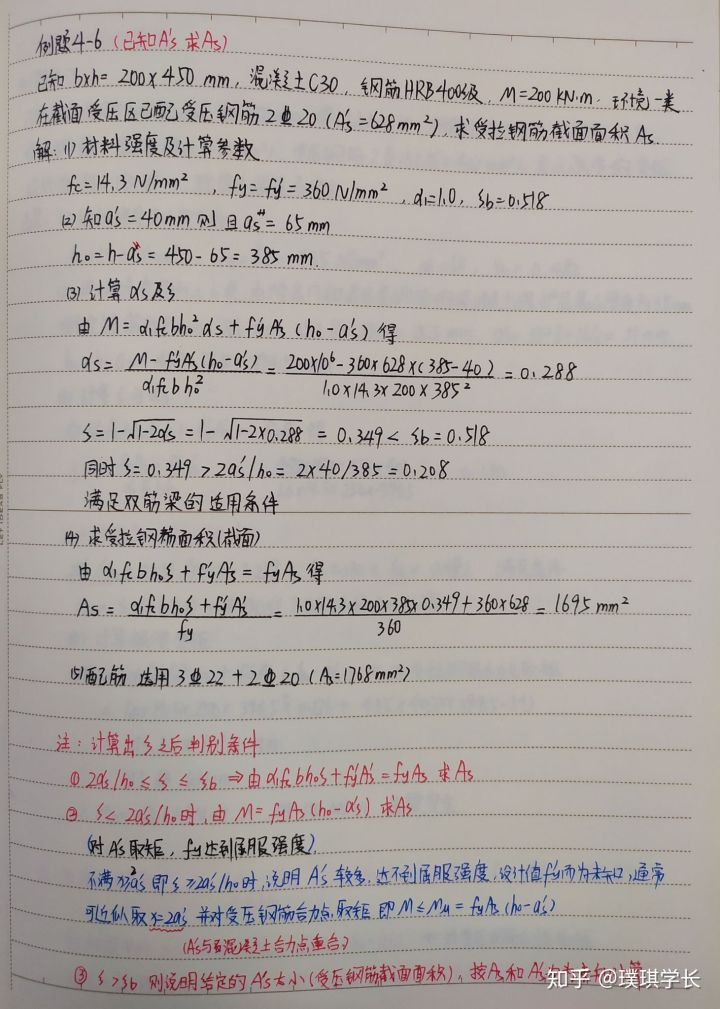 例题4-6 (已知A's 求As)
已知 b×h = 200×450 mm, 混凝土C30, 钢筋HRB400级, M=200 KN·m. 环境一类
在截面受压区已配受压钢筋 2⌀20 (A's=628mm²), 求受拉钢筋截面面积As.
解: (1) 材料强度及计算参数
fc=14.3 N/mm², fy=fy'=360 N/mm², α1=1.0, ξb=0.518
(2) 知a's=40mm 则且as=65mm
h0=h-as=450-65=385 mm.
(3) 计算αs及ξ
由 M=α1fcbh0²αs+fy'A's(h0-a's) 得
αs= (M-fy'A's(h0-a's))/(α1fcbh0²) = (200×10⁶-360×628×(385-40))/(1.0×14.3×200×385²) = 0.288
ξ=1-√(1-2αs)=1-√(1-2×0.288) = 0.349< ξb=0.518
同时ξ=0.349 >2a's/h0=2×40/385=0.208
满足双筋梁的适用条件
(4) 求受拉钢筋面积(截面)
由 α1fcbh0ξ+fy'A's=fyAs 得
As= (α1fcbh0ξ+fy'A's)/fy = (1.0×14.3×200×385×0.349+360×628)/360 = 1695 mm²
(5) 配筋 选用 3⌀22+2⌀20 (As=1768mm²)
注: 计算出ξ之后判别条件
① 2a's/h0≤ξ≤ξb ⇒由α1fcbh0ξ+fy'A's=fyAs 求As
② ξ<2a's/h0时, 由 M=fyAs(h0-a's) 求As
(对A's取矩, fy达到屈服强度)
不满x≥2a's 即ξ≥2a's/h0时, 说明A's较多, 达不到屈服强度, 设计值fy'而为未知, 通常
可近似取x=2a's 并对受压钢筋合力点取矩 即M≤Mu=fyAs(h0-a's)
(A's与混凝土合力点重合)
③ ξ>ξb 则说明给定的A's太小(受压钢筋截面面积), 按As和A's
知乎 @璞琪学长